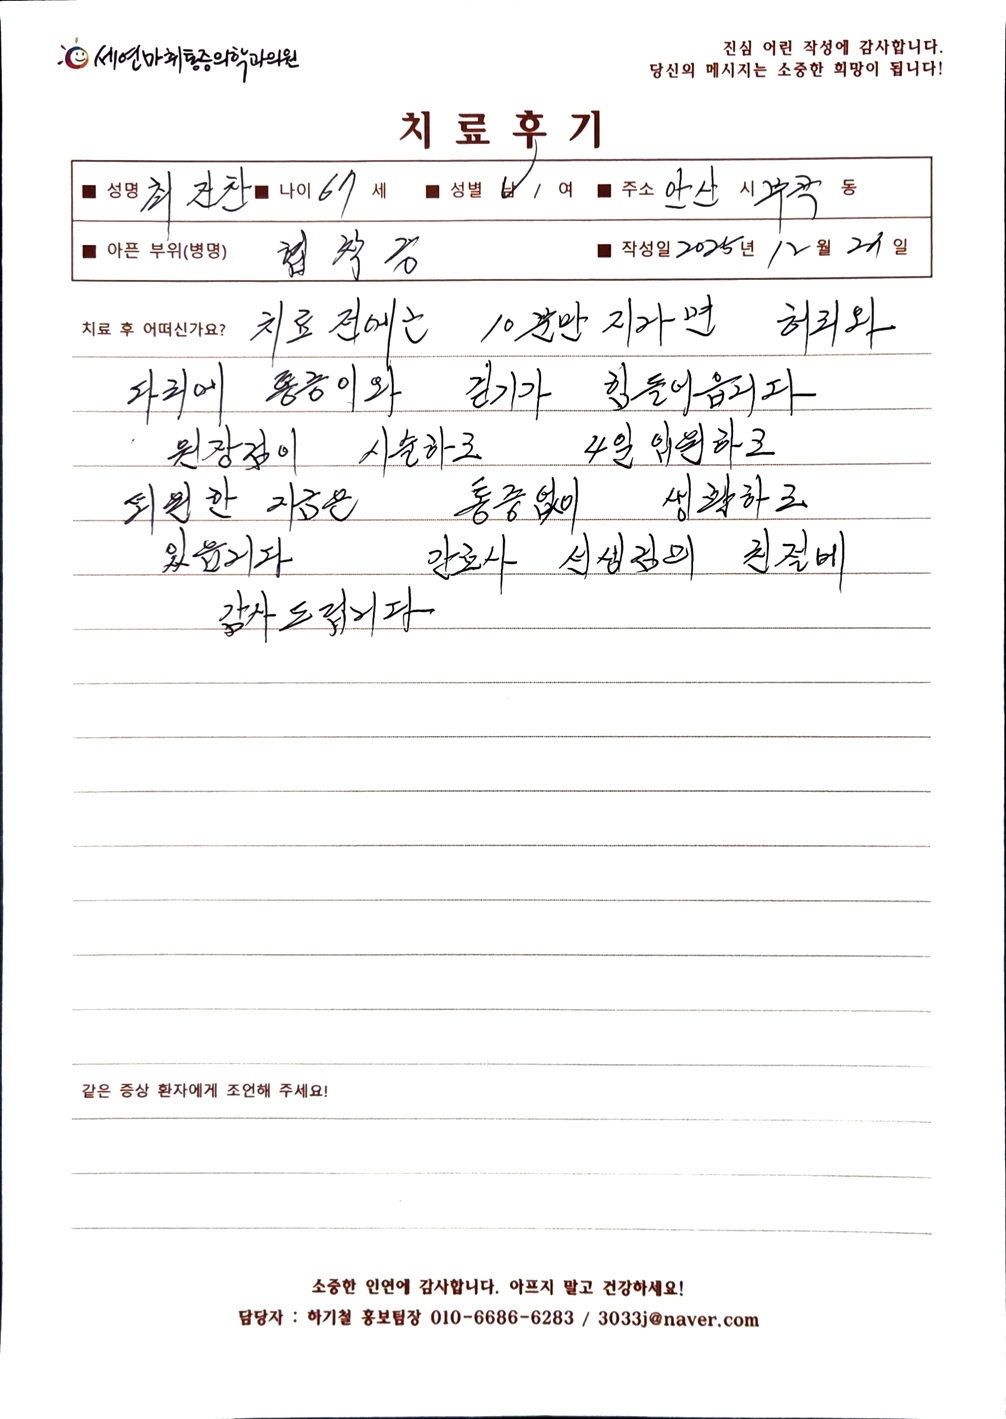 세연마취통증의학과의원
진심 어린 작성에 감사합니다.
당신의 메시지는 소중한 희망이 됩니다!
치료후기
■ 성명 최진찬 ■ 나이 67 세 ■ 성별 남 / 여 ■ 주소 안산 시 부곡 동
■ 아픈 부위(병명) 협착증 ■ 작성일 2025년 12월 29일
치료 후 어떠신가요? 치료 전에는 10분만 지나면 허리와
다리에 통증이와 걷기가 힘들어읍니다
원장님이 시술하고 4일 입원하고
퇴원한 지금은 통증없이 생활하고
있읍니다 간호사 선생님의 친절에
감사드립니다
같은 증상 환자에게 조언해 주세요!
소중한 인연에 감사합니다. 아프지 말고 건강하세요!
담당자 : 하기철 홍보팀장 010-6686-6283 / 3033j@naver.com